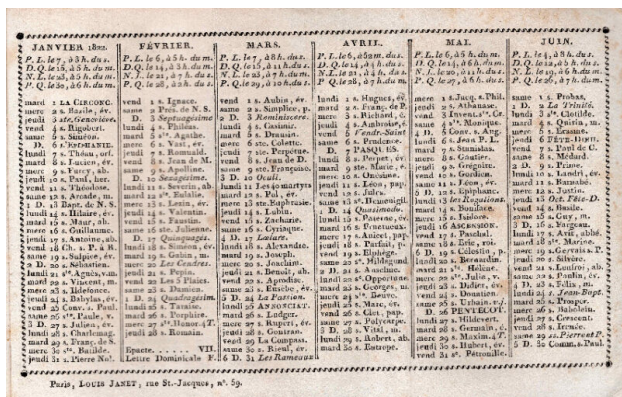 JANVIER 1822.
P. L. le 7, à 3 h. du s.
D. Q. le 15, à 5 h. du m.
N. L. le 23, à 5 h. du m.
P. Q. le 30, à 6 h. du m.
mard 1 LA CIRCONC.
merc 2 s. Basile, év.
jeudi 3 ste. Geneviève.
vend 4 s. Rigobert.
same 5 s. Siméon.
D. 6 L'EPIPHANIE.
lundi 7 s. Théau, orf.
mard 8 s. Lucien, év.
merc 9 s. Furcy, ab.
jeudi 10 s. Paul, her.
vend 11 s. Théodose.
same 12 s. Arcade, m.
1 D. 13 Bapt. de N. S.
lundi 14 s. Hilaire, év.
mard 15 s. Maur, ab.
merc 16 s. Guillaume.
jeudi 17 s. Antoine, ab.
vend 18 Ch. s. P. à R.
same 19 s. Sulpice, év.
2 D. 20 s. Sébastien.
lundi 21 ste. Agnès, v. m.
mard 22 s. Vincent, m.
merc 23 s. Ildefonse.
jeudi 24 s. Babylas, év.
vend 25 Conv. s. Paul.
same 26 ste. Paule, v.
3 D. 27 s. Julien, év.
lundi 28 s. Charlemag.
mard 29 s. Franç. de S.
merc 30 ste. Batilde.
jeudi 31 s. Pierre Nol.
FÉVRIER.
P. L. le 6, à 5 h. du m.
D. Q. le 14, à 3 h. du m.
N. L. le 21, à 7 h. du s.
P. Q. le 28, à 2 h. du s.
vend 1 s. Ignace.
same 2 Prés. de N. S.
D. 3 Septuagésime
lundi 4 s. Philéas.
mard 5 ste. Agathe.
merc 6 s. Vast, év.
jeudi 7 s. Romuald.
vend 8 s. Jean de M.
same 9 s. Apolline.
D. 10 Sexagésime.
lundi 11 s. Severin, ab.
mard 12 ste. Eulalie.
merc 13 s. Lezin, év.
jeudi 14 s. Valentin.
vend 15 s. Faustin.
same 16 ste. Julienne.
D. 17 Quinquagés.
lundi 18 s. Siméon, év.
mard 19 s. Gabin, m.
merc 20 Les Cendres.
jeudi 21 s. Pepin.
vend 22 Les 5 Plaies
same 23 s. Damien.
1 D. 24 Quadragésim.
lundi 25 s. Taraise.
mard 26 s. Porphire.
merc 27 ste. Honor. 4 T.
jeudi 28 s. Romain.
Epacte . . . . . . VII.
Lettre Dominicale F.
MARS.
P. L. le 7, à 8 h. du s.
D. Q. le 15, à 11 h. du s.
N. L. le 23, à 7 h. du m.
P. Q. le 29, à 10 h. du s.
vend 1 s. Aubin, év.
same 2 s. Simplice, p.
2 D. 3 Reminiscere.
lundi 4 s. Casimir.
mard 5 s. Drausin.
merc 6 ste. Colette.
jeudi 7 ste. Perpétue.
vend 8 s. Jean de D.
same 9 ste. Françoise.
3 D. 10 Oculi.
lundi 11 Les 40 martyrs
mard 12 s. Pol, év.
merc 13 ste. Euphrasie.
jeudi 14 s. Lubin.
vend 15 s. Zacharie.
same 16 s. Cyriaque.
4 D. 17 Lætare.
lundi 18 s. Alexandre.
mard 19 s. Joseph.
merc 20 s. Joachim.
jeudi 21 s. Benoît, ab.
vend 22 s. Aprodise.
same 23 s. Eusèbe, év.
5 D. 24 La Passion.
lundi 25 ANNONCIAT.
mard 26 s. Ludger.
merc 27 s. Rupert, év.
jeudi 28 s. Gontran.
vend 29 La Compass.
same 30 s. Rieul, év.
6 D. 31 Les Rameaux
AVRIL.
P. L. le 6,
D. Q. le 14,
N. L. le 21,
P. Q. le 28, à 7 h. du m.
lundi 1 s. Hugues, év.
mard 2 s. Franç. de P.
merc 3 s. Richard, é.
jeudi 4 s. Ambroise, é.
vend 5 Vendr.-Saint
same 6 s. Prudence.
D. 7 PASQUES.
lundi 8 s. Perpet, év.
mard 9 ste. Marie, é.
merc 10 s. Onésime.
jeudi 11 s. Léon, pap.
vend 12 s. Jules.
same 13 s. Hemenigil.
1 D. 14 Quasimodo.
lundi 15 s. Paterne, év.
mard 16 s. Fructueux.
merc 17 s. Anicet, pap.
jeudi 18 s. Parfait, p.
vend 19 s. Elphège.
same 20 ste. Hildegund
2 D. 21 s. Anselme.
lundi 22 ste. Opportune
mard 23 s. Georges, m.
merc 24 ste. Beuve.
jeudi 25 s. Marc, év.
vend 26 s. Clet, pap.
same 27 s. Polycarpe.
3 D. 28 s. Vital, m.
lundi 29 s. Robert, ab.
mard 30 s. Eutrope.
MAI.
P. L. le 6, à 5 h. du m.
D. Q. le 14, à 6 h. du m.
N. L. le 20, à 11 h. du m.
P. Q. le 27, à 6 h. du s.
merc 1 s. Jacq. s. Phil.
jeudi 2 s. Athanase.
vend 3 Invent. ste. Cr.
same 4 ste. Monique.
4 D. 5 Conv. s. Aug.
lundi 6 s. Jean P. L.
mard 7 s. Stanislas.
merc 8 s. Gautier.
jeudi 9 s. Grégoire.
vend 10 s. Gordien.
same 11 s. Léon, év.
5 D. 12 s. Epiphane.
lundi 13 les Rogations.
mard 14 s. Boniface.
merc 15 s. Isidore.
jeudi 16 ASCENSION.
vend 17 s. Pascal.
same 18 s. Eric, roi.
6 D. 19 s. Célestin, p.
lundi 20 s. Bernardin.
mard 21 ste. Hélène.
merc 22 ste. Julie, v.
jeudi 23 s. Didier, év.
vend 24 s. Donatien.
same 25 s. Urbain. v. j.
D. 26 PENTECOT.
lundi 27 s. Hildevert.
mard 28 s. Germain, é.
merc 29 s. Maxim. 4 T.
jeudi 30 s. Hubert, év.
vend 31 ste. Pétronille.
JUIN.
P. L. le 4, à 8 h. du s.
N. L. le 19, à 6 h. du m.
P. Q. le 26, à 7 h. du m.
same 1 s. Probas.
1 D. 2 La Trinité.
lundi 3 ste. Clotilde.
mard 4 s. Quirin, m.
merc 5 s. Erasme.
jeudi 6 FÊTE-DIEU.
vend 7 s. Paul de C.
same 8 s. Médard.
2 D. 9 s. Prime.
lundi 10 s. Landri, év.
mard 11 s. Barnabé.
merc 12 s. Justin.
jeudi 13 Oct. Fête-D.
vend 14 s. Basile.
same 15 s. Guy, m.
3 D. 16 s. Fargeau.
lundi 17 s. Avit, abbé.
mard 18 ste. Marine.
merc 19 s. Gervais. P.
jeudi 20 s. Silvère.
vend 21 s. Leufroi, ab.
same 22 s. Paulin, év.
4 D. 23 s. Félix, m.
lundi 24 s. Jean-Bapt.
mard 25 s. Prosper.
merc 26 s. Babolein.
jeudi 27 s. Crescent.
vend 28 s. Irénée.
same 29 ss. Pierre et P.
5 D. 30 Comm. s. Paul.
Paris, LOUIS JANET, rue St.-Jacques, n°. 59.